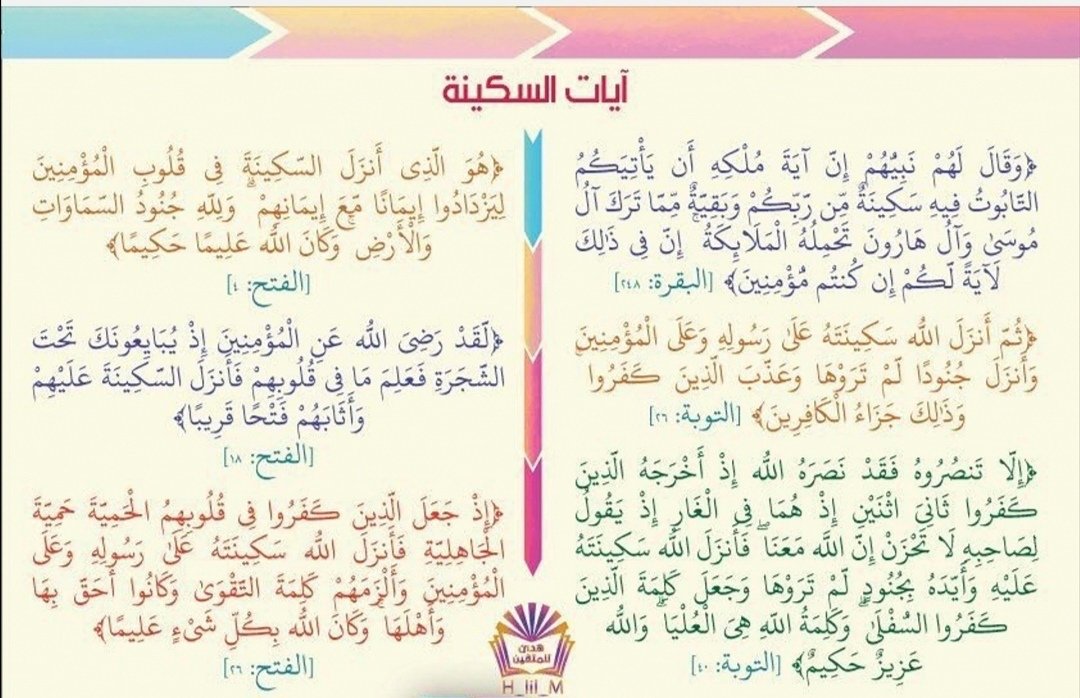 آيات السكينة
﴿وَقَالَ لَهُمْ نَبِيُّهُمْ إِنَّ آيَةَ مُلْكِهِ أَن يَأْتِيَكُمُ
التَّابُوتُ فِيهِ سَكِينَةٌ مِّن رَّبِّكُمْ وَبَقِيَّةٌ مِّمَّا تَرَكَ آلُ
مُوسَىٰ وَآلُ هَارُونَ تَحْمِلُهُ الْمَلَائِكَةُ ۚ إِنَّ فِي ذَٰلِكَ
لَآيَةً لَّكُمْ إِن كُنتُم مُّؤْمِنِينَ﴾ [البقرة: ٢٤٨]
﴿ثُمَّ أَنزَلَ اللَّه سَكِينَتَهُ عَلَىٰ رَسُولِهِ وَعَلَى الْمُؤْمِنِينَ
وَأَنزَلَ جُنُودًا لَّمْ تَرَوْهَا وَعَذَّبَ الَّذِينَ كَفَرُوا ۚ
وَذَٰلِكَ جَزَاءُ الْكَافِرِينَ﴾ [التوبة: ٢٦]
﴿إِلَّا تَنصُرُوهُ فَقَدْ نَصَرَهُ اللَّه إِذْ أَخْرَجَهُ الَّذِينَ
كَفَرُوا ثَانِيَ اثْنَيْنِ إِذْ هُمَا فِي الْغَارِ إِذْ يَقُولُ
لِصَاحِبِهِ لَا تَحْزَنْ إِنَّ اللَّهَ مَعَنَا ۖ فَأَنزَلَ اللَّه سَكِينَتَهُ
عَلَيْهِ وَأَيَّدَهُ بِجُنُودٍ لَّمْ تَرَوْهَا وَجَعَلَ كَلِمَةَ الَّذِينَ
كَفَرُوا السُّفْلَىٰ ۗ وَكَلِمَةُ اللَّهِ هِيَ الْعُلْيَا ۗ وَاللَّه
عَزِيزٌ حَكِيمٌ﴾ [التوبة: ٤٠]
﴿هُوَ الَّذِي أَنزَلَ السَّكِينَةَ فِي قُلُوبِ الْمُؤْمِنِينَ
لِيَزْدَادُوا إِيمَانًا مَّعَ إِيمَانِهِمْ ۗ وَلِلَّهِ جُنُودُ السَّمَاوَاتِ
وَالْأَرْضِ ۚ وَكَانَ اللَّه عَلِيمًا حَكِيمًا﴾
[الفتح: ٤]
﴿لَّقَدْ رَضِيَ اللَّه عَنِ الْمُؤْمِنِينَ إِذْ يُبَايِعُونَكَ تَحْتَ
الشَّجَرَةِ فَعَلِمَ مَا فِي قُلُوبِهِمْ فَأَنزَلَ السَّكِينَةَ عَلَيْهِمْ
وَأَثَابَهُمْ فَتْحًا قَرِيبًا﴾
[الفتح: ١٨]
﴿إِذْ جَعَلَ الَّذِينَ كَفَرُوا فِي قُلُوبِهِمُ الْحَمِيَّةَ حَمِيَّةَ
الْجَاهِلِيَّةِ فَأَنزَلَ اللَّه سَكِينَتَهُ عَلَىٰ رَسُولِهِ وَعَلَى
الْمُؤْمِنِينَ وَأَلْزَمَهُمْ كَلِمَةَ التَّقْوَىٰ وَكَانُوا أَحَقَّ بِهَا
وَأَهْلَهَا ۚ وَكَانَ اللَّه بِكُلِّ شَيْءٍ عَلِيمًا﴾
[الفتح: ٢٦]
هدى
للمتقين
H_lil_M